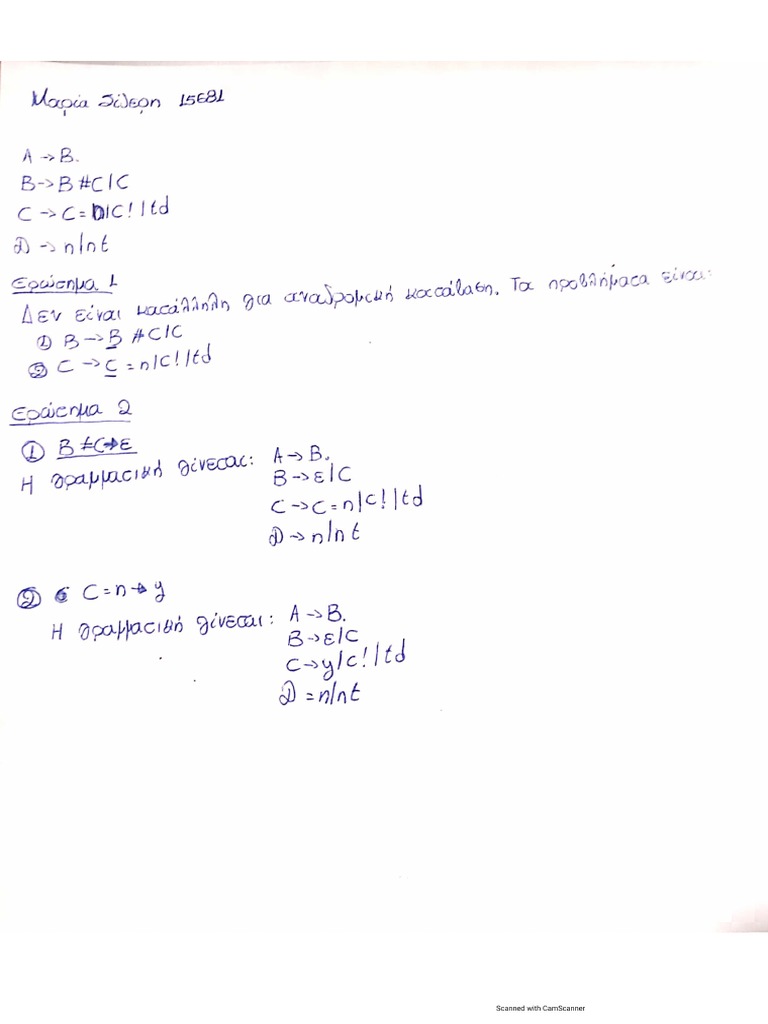 Μαρία 15681
A -> B.
B -> B # C / C
C -> C = n / C! / td
D -> n / nt
Ερώτημα 1
Δεν είναι κατάλληλη για αναδρομική κατάβαση. Τα προβλήματα είναι:
① B -> B # C / C
② C -> C = n / C! / td
Ερώτημα 2
① B # C -> ε
Η γραμματική γίνεται: A -> B.
B -> ε / C
C -> C = n / C! / td
D -> n / nt
② C = n -> y
Η γραμματική γίνεται: A -> B.
B -> ε / C
C -> y / C! / td
D = n / nt
Scanned with CamScanner